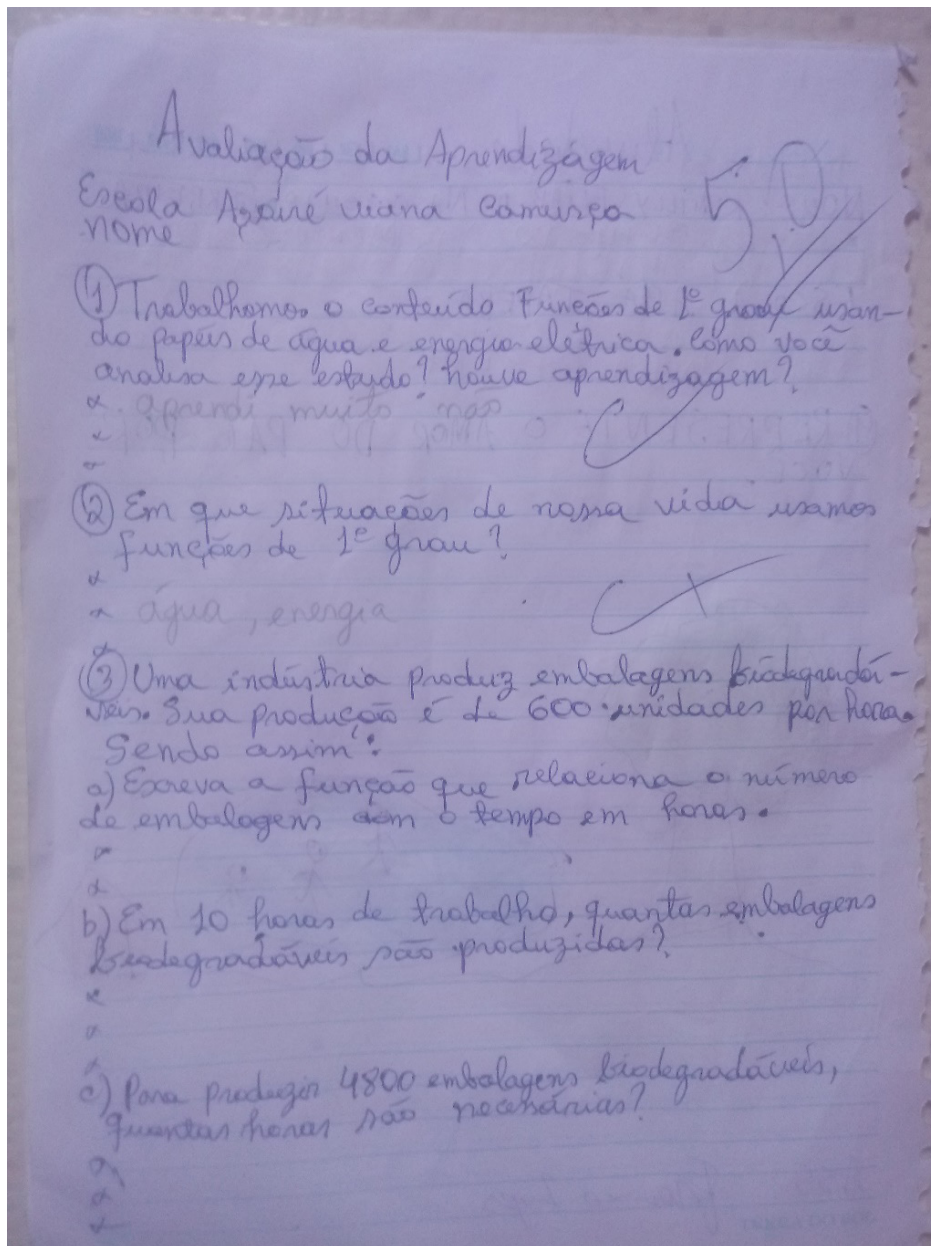 Avaliação da Aprendizagem
5,0
Escola viana Camurça
nome
① Trabalhamos o conteúdo Funções de 1º grau usan-
do papéis de água e energia elétrica. Como você
analisa esse estudo? houve aprendizagem?
aprendi muito não
② Em que situações de nossa vida usamos
funções de 1º grau?
água, energia
③ Uma indústria produz embalagens biodegradá-
veis. Sua produção é de 600 unidades por hora.
Sendo assim:
a) Escreva a função que relaciona o número
de embalagens com o tempo em horas.
b) Em 10 horas de trabalho, quantas embalagens
biodegradáveis são produzidas?
c) Para produzir 4800 embalagens biodegradáveis,
quantas horas são necessárias?